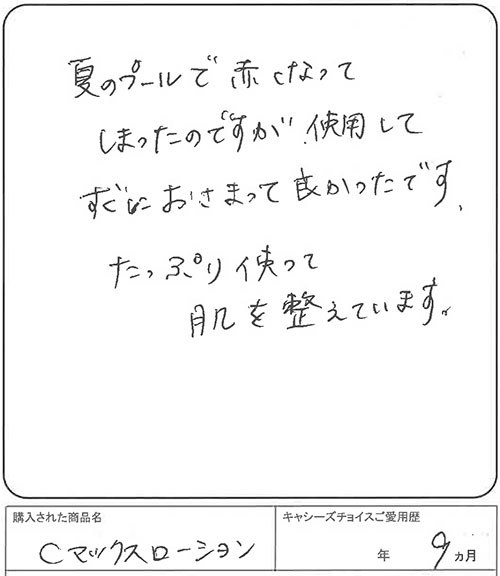 夏のプールで赤くなって
しまったのですが、使用して
すぐにおさまって良かったです、
たっぷり使って
肌を整えています。
購入された商品名
Cマックスローション
キャシーズチョイスご愛用歴
年 9ヵ月